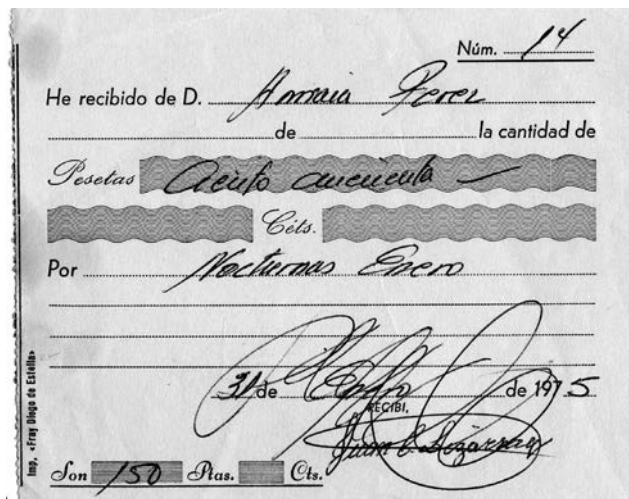 Núm. 14
He recibido de D. Amaia Perez
de la cantidad de
Pesetas Ciento cincuenta —
Céts.
Por Nocturnas Enero
31 de Enero de 1975
RECIBI,
Juan C. Lizarraga
Son 150 Ptas. Cts.
Imp. «Fray Diego de Estella»